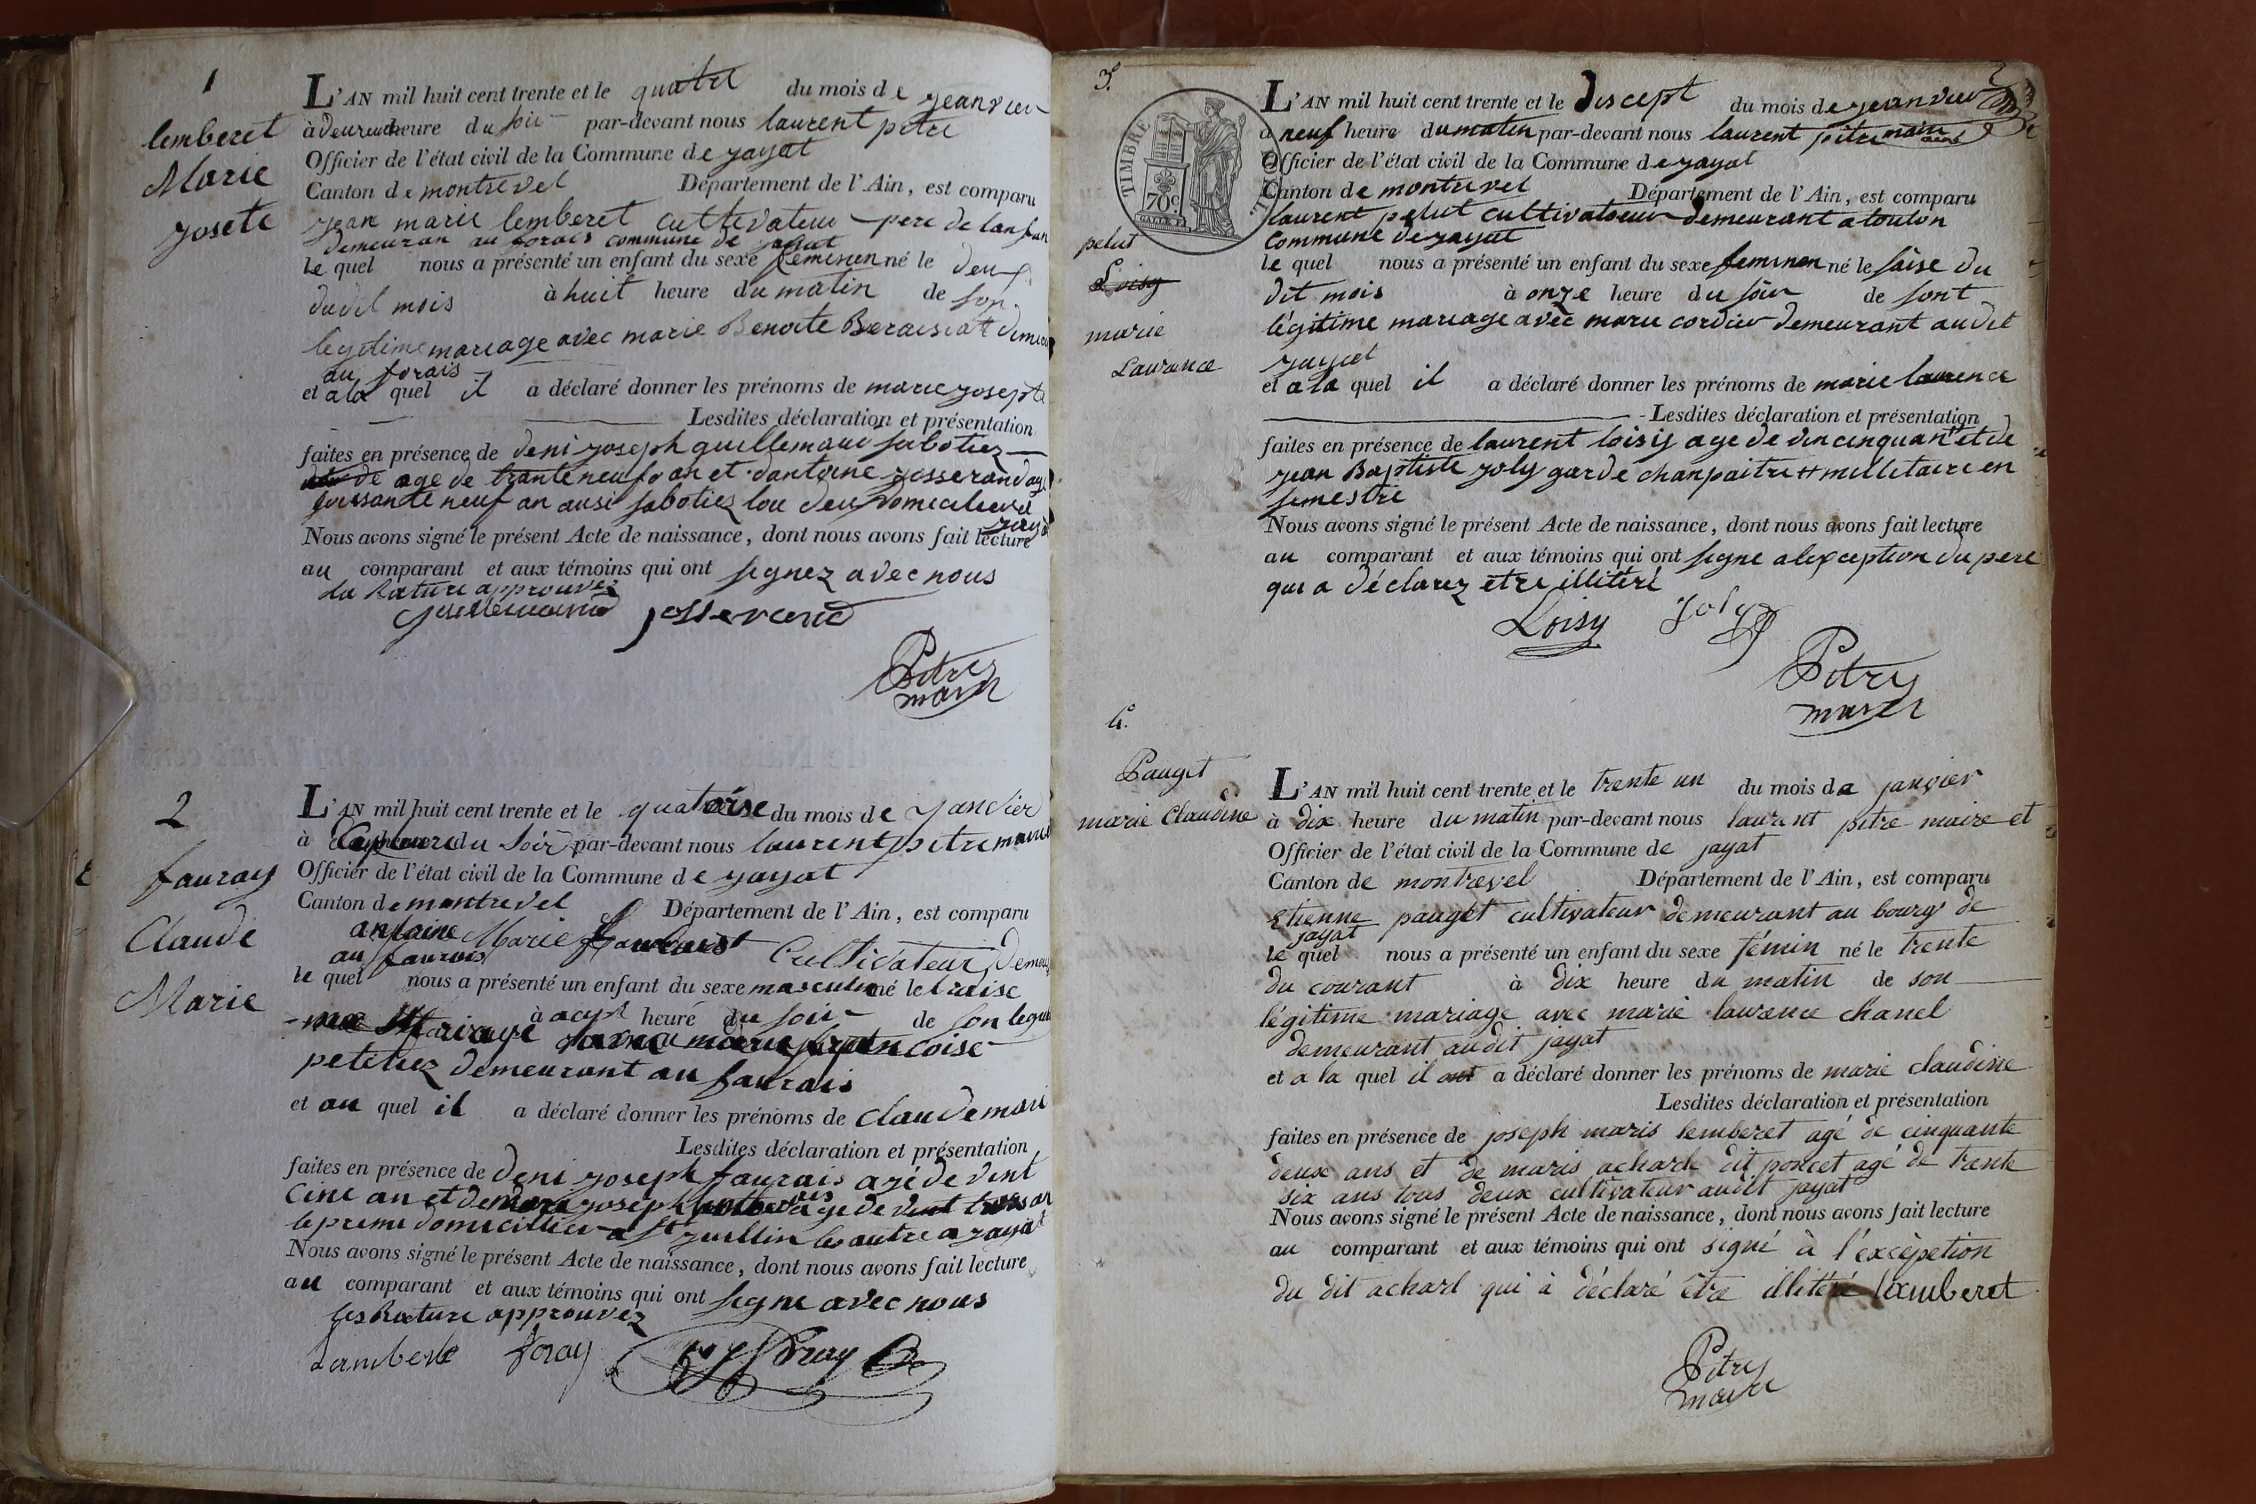 1
lemberet
Marie
yosete
L'AN mil huit cent trente et le quatre du mois de yeanvier
à deux heure du soir par-devant nous laurent pitre
Officier de l'état civil de la Commune de yayat
Canton de montrevel Département de l'Ain, est comparu
yean marie lemberet cultivateur pere de lanfan
demeuran au forais commune de yayat
le quel nous a présenté un enfant du sexe feminen né le deux
dudit mois à huit heure du matin de son
legitime mariage avec marie Benoite Beraisiat demeu
au forais
et a la quel il a déclaré donner les prénoms de marie yosepte
Lesdites déclaration et présentation
faites en présence de deni yoseph guillemaud sabotiez
de age de trante neuf an et dantoine yosserand age
soissante neuf an ausi sabotiez tou deux domicilier a
yayat
Nous avons signé le présent Acte de naissance, dont nous avons fait lecture
au comparant et aux témoins qui ont segnez avec nous
la Rature approuvez
Guillemaud josserand
Pitre
maire
2
fauray
Claude
Marie
L'AN mil huit cent trente et le quatorse du mois de yanvier
à heure du soir par-devant nous laurent pitre maire
Officier de l'état civil de la Commune de yayat
Canton de montrevel Département de l'Ain, est comparu
antoine Marie Cultivateur demeu
au faurais
le quel nous a présenté un enfant du sexe masculin né le traise
à heure du soir de son legiti
mariage marie francoise
petitiez demeurant au faurais
et au quel il a déclaré donner les prénoms de claude mari
Lesdites déclaration et présentation
faites en présence de deni yoseph faurais agé de vint
cinc an et de yoseph age de vint trois an
le premie domicillier a St yullin les autre a yayat
Nous avons signé le présent Acte de naissance, dont nous avons fait lecture
au comparant et aux témoins qui ont segne avec nous
les Rature approuvez
Lamberet foray
3.
pelut
Loisy
marie
Laurance
2
TIMBRE
70c
L'AN mil huit cent trente et le discept du mois de yeanvier
a neuf heure du matin par-devant nous laurent pitre maire
Officier de l'état civil de la Commune de yayat
Canton de montrevel Département de l'Ain, est comparu
laurent pelut cultivateur demeurant a toulon
commune de yayat
le quel nous a présenté un enfant du sexe feminen né le saise du
dit mois à onze heure du soir de sont
légitime mariage avec marie cordier demeurant audit
yayat
et a la quel il a déclaré donner les prénoms de marie laurence
Lesdites déclaration et présentation
faites en présence de laurent loisiy age de vincinquant et de
yean Baptiste yoly garde chanpaitre et millitaire en
semestre
Nous avons signé le présent Acte de naissance, dont nous avons fait lecture
au comparant et aux témoins qui ont segne a lexception du pere
qui a déclarez etre illitéré
Loisy Joly
Pitre
maire
4.
Pauget
marie Claudine
L'AN mil huit cent trente et le trente un du mois de janvier
à dix heure du matin par-devant nous laurent pitre maire et
Officier de l'état civil de la Commune de jayat
Canton de montrevel Département de l'Ain, est comparu
Etienne pauget cultivateur demeurant au bourg de
jayat
le quel nous a présenté un enfant du sexe fémin né le trente
du courant à dix heure du matin de son
légitime mariage avec marie laurence chanel
demeurant audit jayat
et a la quel il ont a déclaré donner les prénoms de marie claudine
Lesdites déclaration et présentation
faites en présence de joseph maris lemberet agé de cinquante
deux ans et de maris acharl dit poncet agé de trente
six ans tous deux cultivateur audit jayat
Nous avons signé le présent Acte de naissance, dont nous avons fait lecture
au comparant et aux témoins qui ont signé à l'excèpetion
du dit acharl qui à déclaré être illitéré Lamberet
Pitre
maire